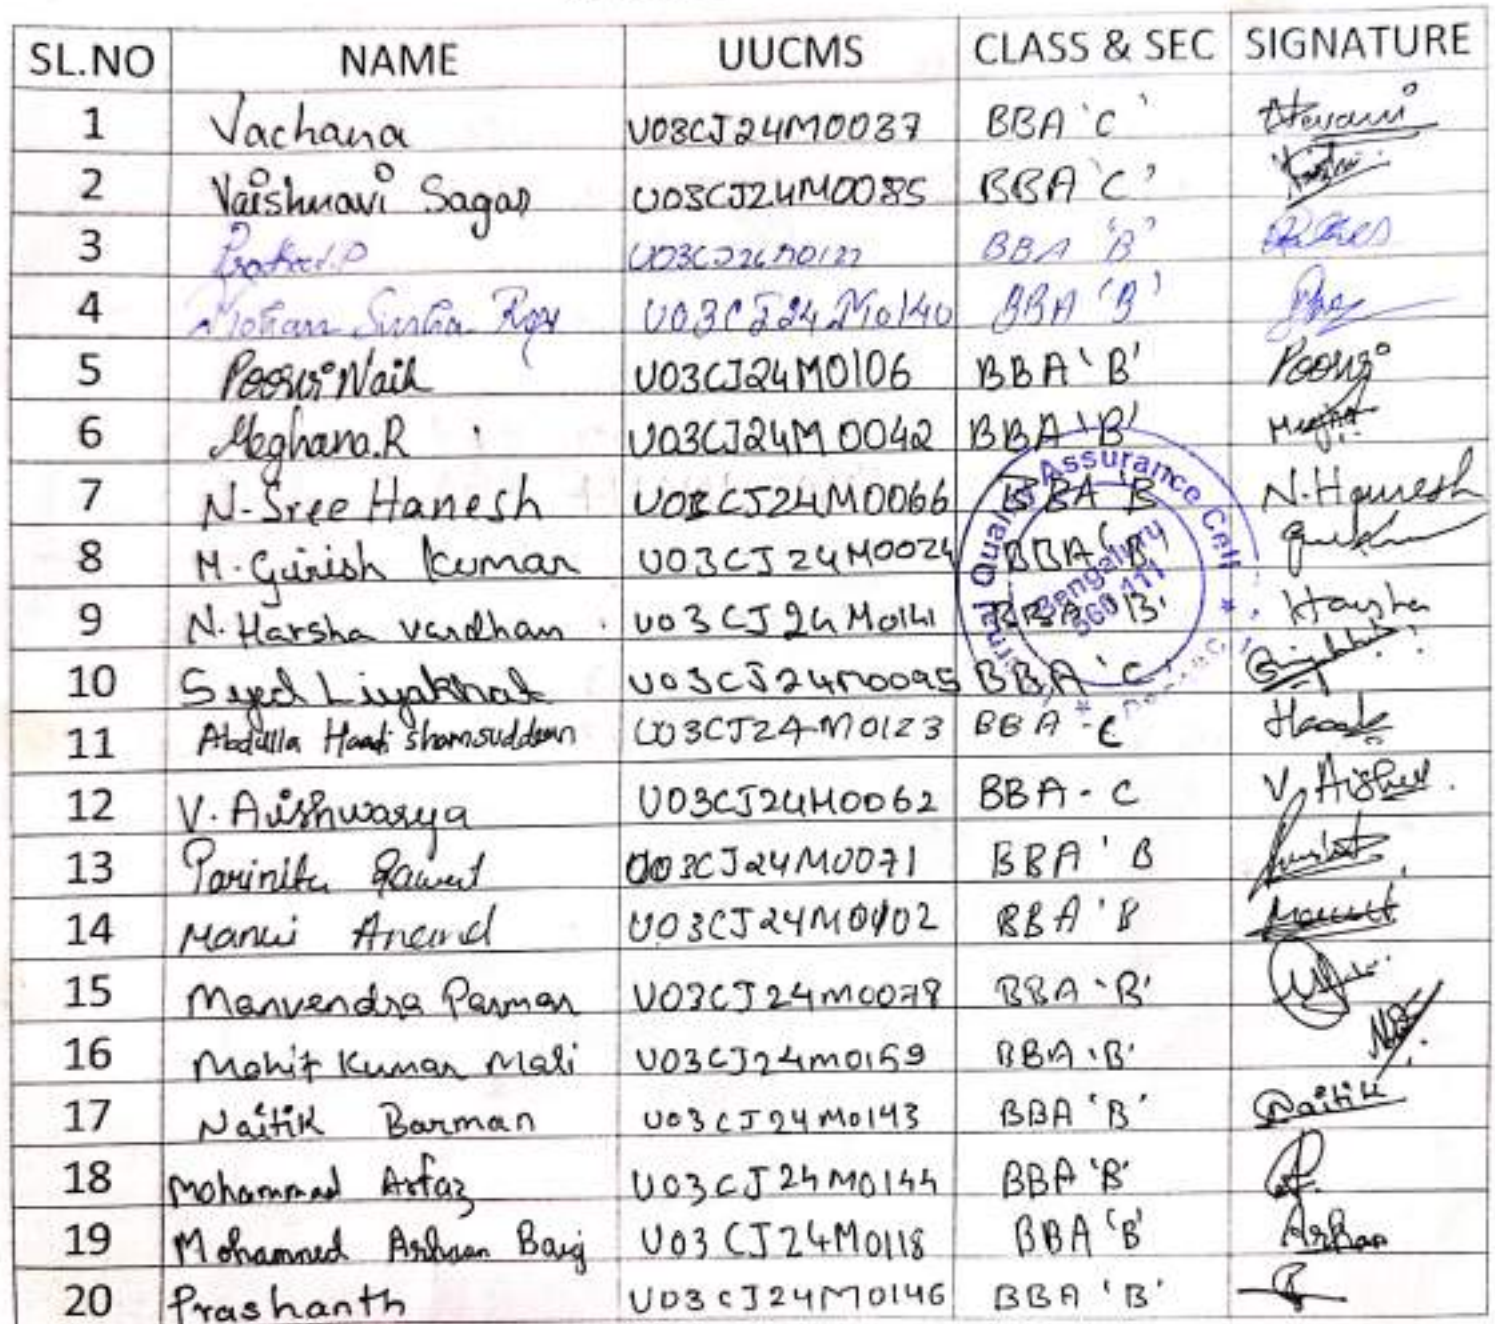 SL.NO NAME UUCMS CLASS & SEC SIGNATURE
1 Vachana U03CJ24M0037 BBA 'C'
2 Vaishnavi Sagar U03CJ24M0085 BBA 'C'
3 BBA 'B'
4 Mohan U03CJ24M0140 BBA 'B'
5 Poorvi Naik U03CJ24M0106 BBA 'B' Poorvi
6 Meghana.R U03CJ24M0042 BBA 'B'
7 N-Sree Hanesh U03CJ24M0066 BBA 'B N.Hanesh
8 M.Girish Kumar U03CJ24M0024 BBA 'B'
9 N.Harsha vardhan U03CJ24M0141 BBA 'B' Harsha
10 Syed Liyakhat U03CJ24M0095 BBA 'C'
11 Abdulla Haadi shamsuddeen U03CJ24M0123 BBA - C
12 V.Aishwarya U03CJ24M0062 BBA - C
13 Parinita Rawat U03CJ24M0071 BBA 'B
14 Manvi Anand BBA 'B
15 Manvendra Parmar U03CJ24M0078 BBA 'B'
16 Mohit Kumar Mali U03CJ24M0159 BBA 'B'
17 Naitik Barman U03CJ24M0143 BBA 'B' Naitik
18 Mohammad Arfaz U03CJ24M0144 BBA 'B'
19 Mohammed Arbaan Baig U03CJ24M0118 BBA 'B' Arbaan
20 Prashanth U03CJ24M0146 BBA 'B'
Quality Assurance Cell
Bengaluru
560 111